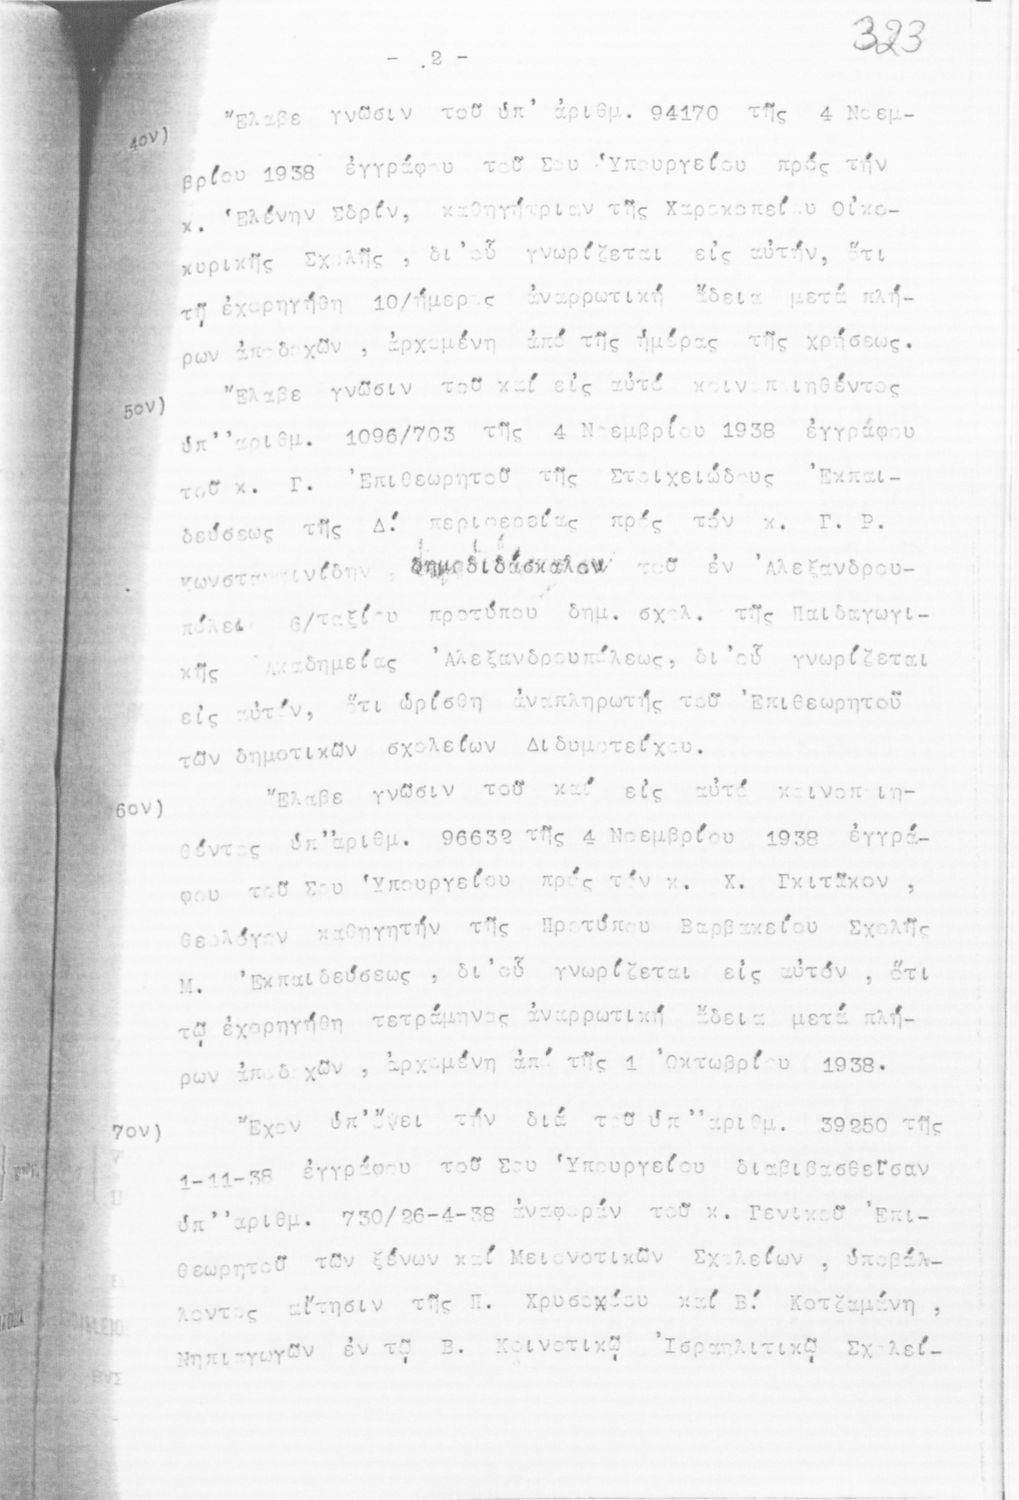 323
- .2 -
4ον)
"Ελαβε γνῶσιν τοῦ ὑπ' ἀριθμ. 94170 τῆς 4 Νοεμ-
βρίου 1938 ἐγγράφου τοῦ Σου Ὑπουργείου πρός τήν
κ. Ἑλένην Σδρίν, καθηγήτριαν τῆς Χαροκοπείου Οἰκο-
κυρικῆς Σχολῆς , δι'οὗ γνωρίζεται εἰς αὐτήν, ὅτι
τῇ ἐχορηγήθη 10/ήμερος ἀναρρωτική ἄδεια μετά πλή-
ρων ἀποδοχῶν , ἀρχομένη ἀπό τῆς ἡμέρας τῆς χρήσεως.
5ον)
"Ελαβε γνῶσιν τοῦ καί εἰς αὐτό κοινοποιηθέντος
ὑπ''αριθμ. 1096/703 τῆς 4 Νοεμβρίου 1938 ἐγγράφου
τοῦ κ. Γ. Ἐπιθεωρητοῦ τῆς Στοιχειώδους Ἐκπαι-
δεύσεως τῆς Δ! περιφερείας πρός τόν κ. Γ. Ρ.
κωνσταντινίδην , δημοδιδάσκαλον τοῦ ἐν Ἀλεξανδρου-
πόλει 6/ταξίου προτύπου δημ. σχολ. τῆς Παιδαγωγι-
κῆς Ἀκαδημείας Ἀλεξανδρουπόλεως, δι'οὗ γνωρίζεται
εἰς αὐτόν, ὅτι ὡρίσθη ἀναπληρωτής τοῦ Ἐπιθεωρητοῦ
τῶν δημοτικῶν σχολείων Διδυμοτείχου.
6ον)
"Ελαβε γνῶσιν τοῦ καί εἰς αὐτό κοινοποιη-
θέντος ὑπ''ἀριθμ. 96632 τῆς 4 Νοεμβρίου 1938 ἐγγρά-
φου τοῦ Σου Ὑπουργείου πρός τόν κ. Χ. Γκιτᾶκον ,
θεολόγον καθηγητήν τῆς Προτύπου Βαρβακείου Σχολῆς
Μ. Ἐκπαιδεύσεως , δι'οὗ γνωρίζεται εἰς αὐτόν , ὅτι
τῷ ἐχορηγήθη τετράμηνος ἀναρρωτική ἄδεια μετά πλή-
ρων ἀποδοχῶν , ἀρχομένη ἀπό τῆς 1 Ὀκτωβρίου 1938.
7ον)
"Εχον ὑπ'ὄψει τήν διά τοῦ ὑπ''αριθμ. 39250 τῆς
1-11-38 ἐγγράφου τοῦ Σου Ὑπουργείου διαβιβασθεῖσαν
ὑπ''αριθμ. 730/26-4-38 ἀναφοράν τοῦ κ. Γενικοῦ Ἐπι-
θεωρητοῦ τῶν ξένων καί Μειονοτικῶν Σχολείων , ὑποβάλ-
λοντος αἴτησιν τῆς Π. Χρυσοχόου καί Β! Κοτζαμάνη ,
Νηπιαγωγῶν ἐν τῷ Β. Κοινοτικῷ Ἰσραηλιτικῷ Σχολεί-